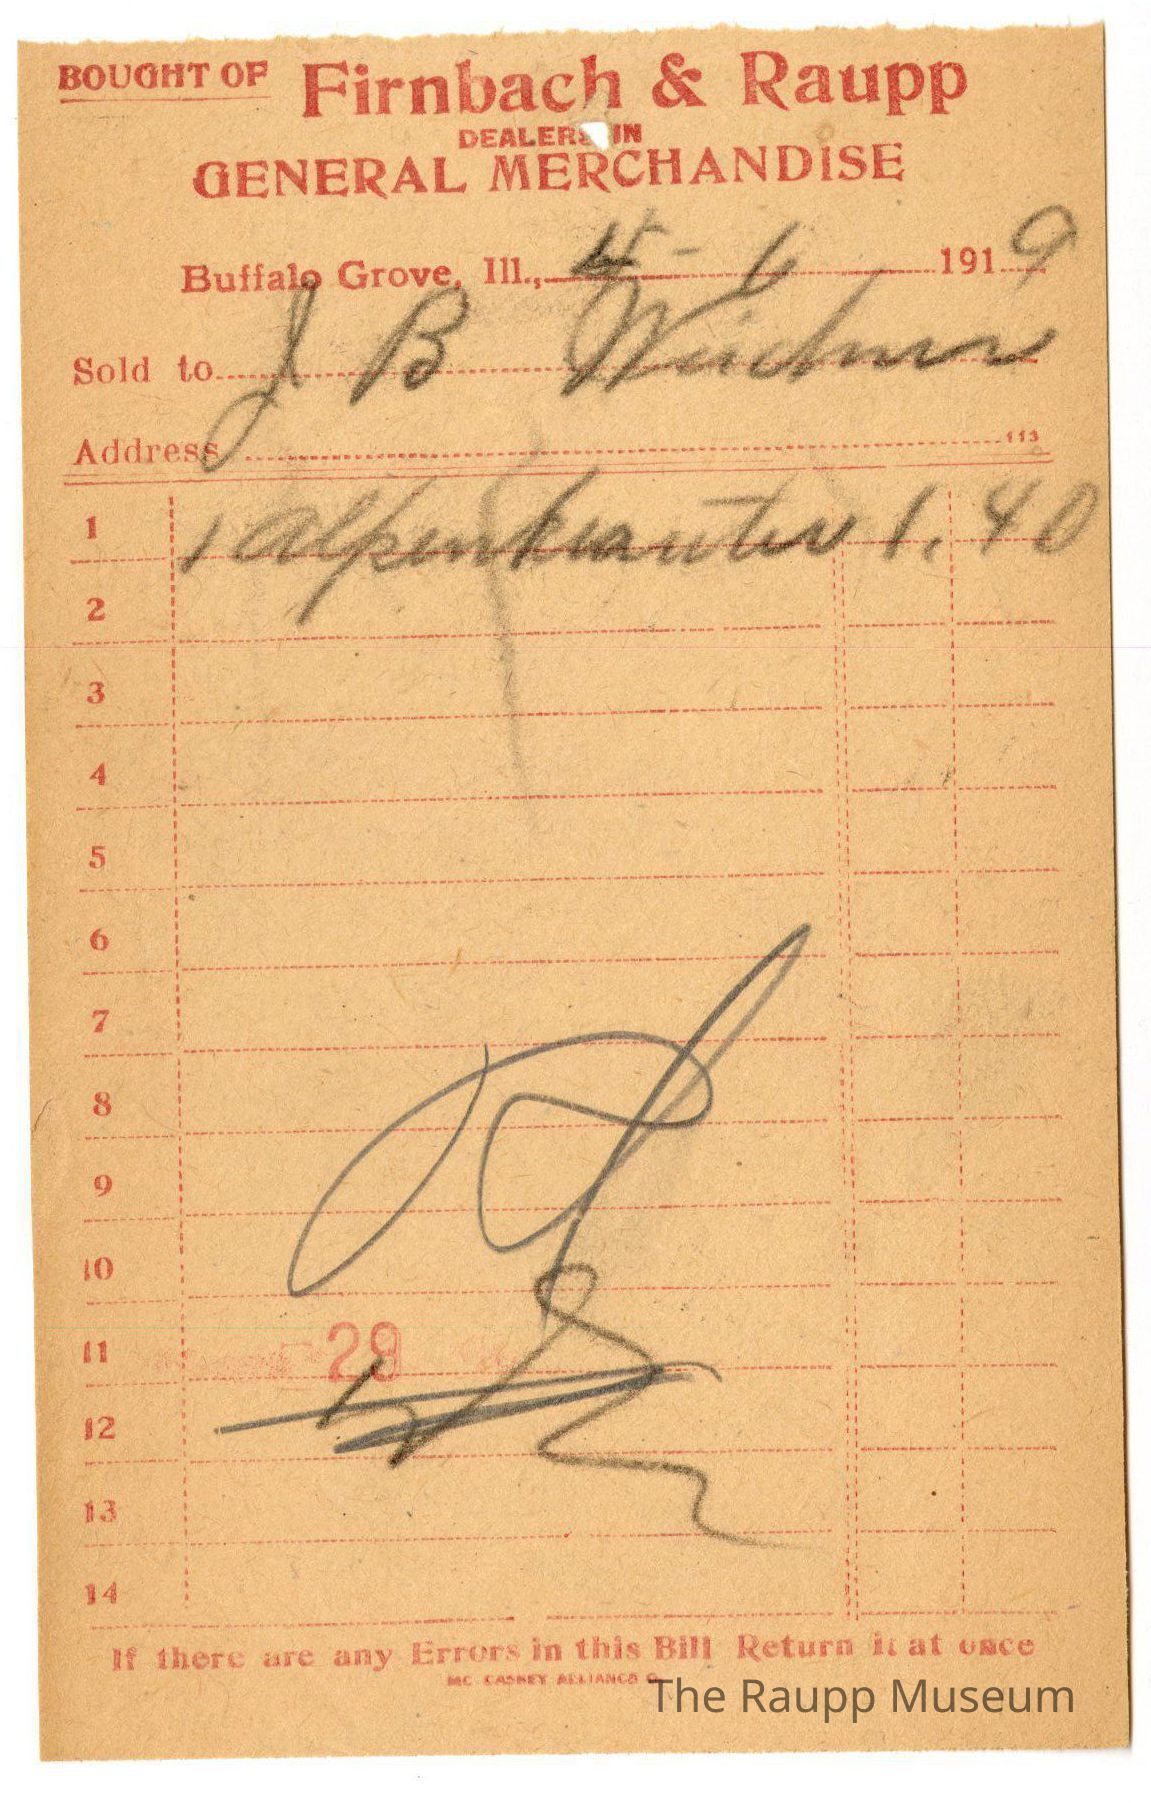 BOUGHT OF Firnbach & Raupp
DEALERS IN
GENERAL MERCHANDISE
Buffalo Grove, Ill., 4-6 1919
Sold to J B
Address 113
1 1 Alpenkrauter 1.40
2
3
4
5
6
7
8
9
10
11 29
12
13
14
If there are any Errors in this Bill Return it at once
MC CASKEY ALLIANCE O.
The Raupp Museum